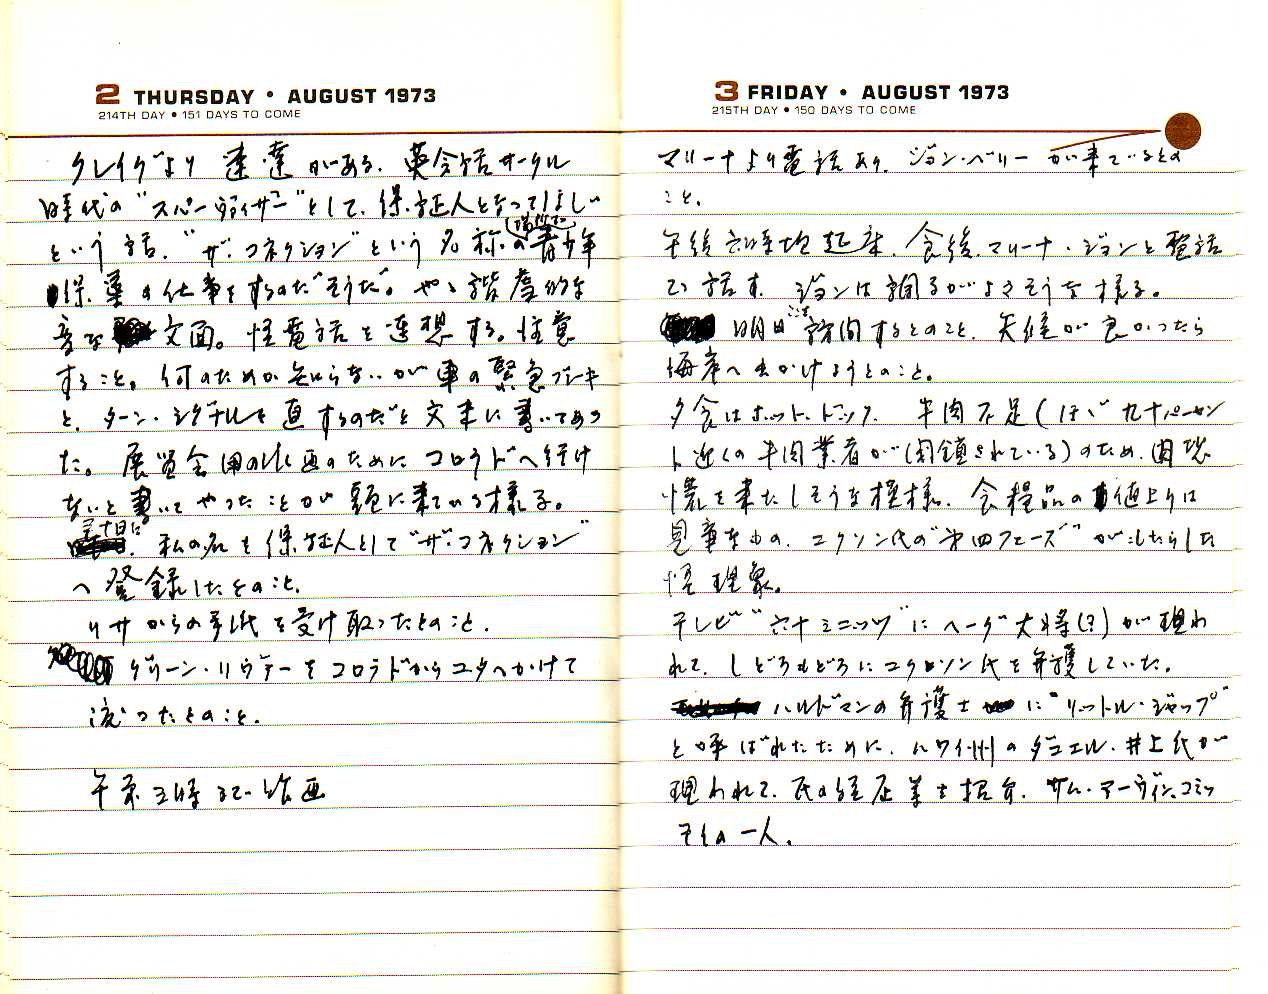 2 THURSDAY • AUGUST 1973
214TH DAY • 151 DAYS TO COME
クレイグより速達がある。英会話サークル
時代の“スパーヴァイザー”として、保証人となってほしい
という話。“ザ・コネクション”という名称の青少年
の仕事をするのだそうだ。やゝ
文面。怪電話を連想する。注意
すること。何のためか知らないが車の緊急ブレーキ
と、ターン・シグナルを直すのだと文末に書いてあっ
た。展覧会用の絵画のためにコロラドへ行け
ないと書いてやったことが頭に来ている様子。
私の名を保証人として“ザ・コネクション”
へ登録したとのこと。
リサからの手紙を受け取ったとのこと。
グリーン・リヴァーをコロラドからユタへかけて
下ったとのこと。
午前三時まで絵画
3 FRIDAY • AUGUST 1973
215TH DAY • 150 DAYS TO COME
マリーナより電話あり。ジョン・ベリーが来ているとの
こと。
午後六時半起床。食後、マリーナ・ジョンと電話
で話す。ジョンは調子がよさそうな様子。
明日訪問するとのこと、天候が良かったら
海岸へ出かけようとのこと。
夕食はホット・ドック。牛肉不足（ほゞ九十パーセン
ト近くの牛肉業者が閉鎖されている）のため、
を来たしそうな模様。食糧品の値上りは
見事なもの、ニクソン氏の“第四フェーズ”がもたらした
怪現象。
テレビ“六十ミニッツ”にヘーグ大将(?)が現わ
れて、しどろもどろにニクソン氏を弁護していた。
ハルドマンの弁護士に“リットル・ジャップ”
と呼ばれたために、ハワイ州のダニエル・井上氏が
現われて、氏の経歴等を紹介。サム・アーヴィン、コミッ
ティの一人。